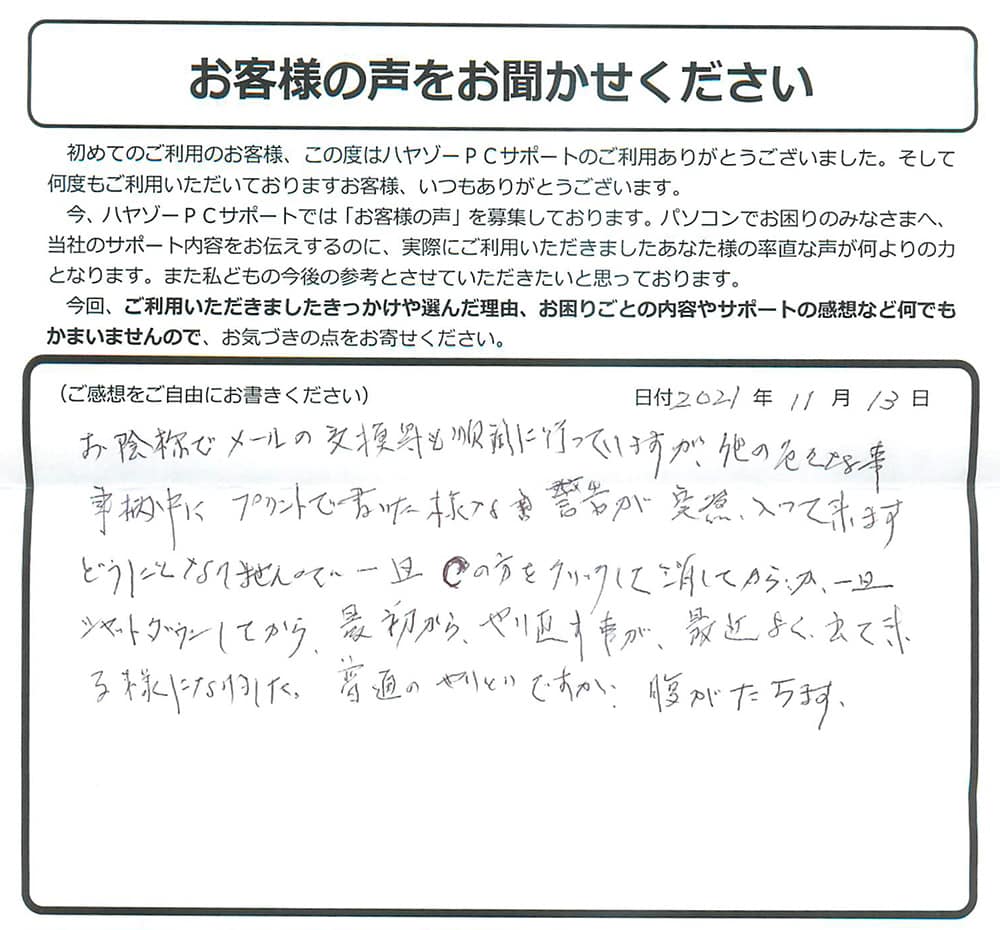 お客様の声をお聞かせください
初めてのご利用のお客様、この度はハヤゾーPCサポートのご利用ありがとうございました。そして
何度もご利用いただいておりますお客様、いつもありがとうございます。
今、ハヤゾーPCサポートでは「お客様の声」を募集しております。パソコンでお困りのみなさまへ、
当社のサポート内容をお伝えするのに、実際にご利用いただきましたあなた様の率直な声が何よりの力
となります。また私どもの今後の参考とさせていただきたいと思っております。
今回、ご利用いただきましたきっかけや選んだ理由、お困りごとの内容やサポートの感想など何でも
かまいませんので、お気づきの点をお寄せください。
（ご感想をご自由にお書きください） 日付 2021 年 11 月 13 日
お陰様でメールの交換等も順調に行っていますが、他の色々な事
事柄中に プリントで書いた様な 警告が 突然、入って来ます
どうにもなりませんので、一旦 の方をクリックして消してから、か、一旦
シャットダウンしてから、最初から、やり直す事が、最近よく、出て来
る様になりました。普通の やりとりですかい? 腹がたちます。